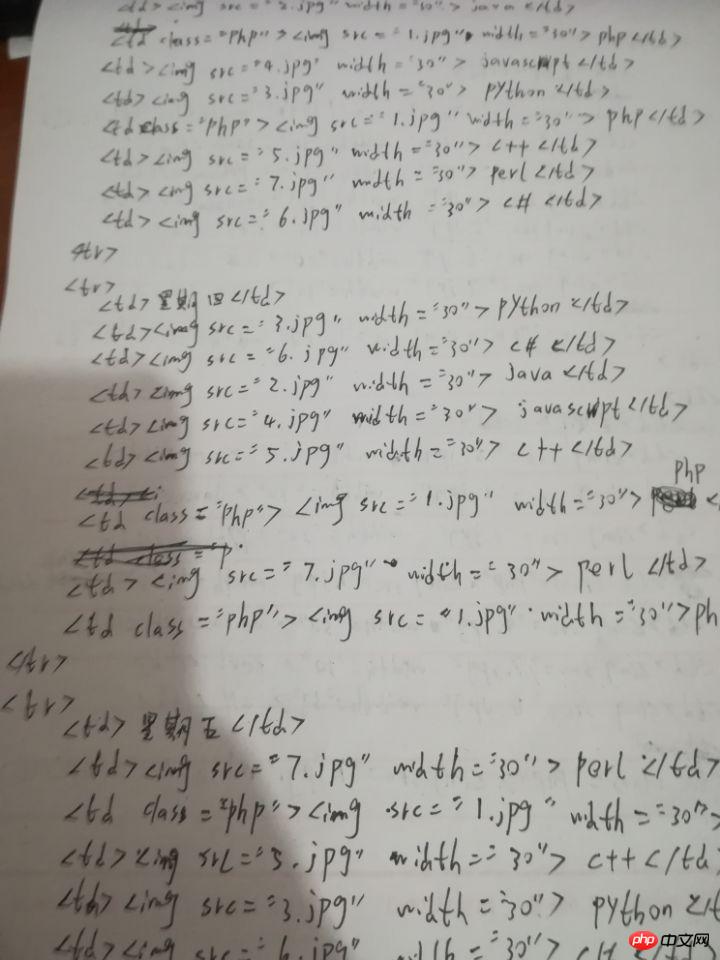 <td><img src="2.jpg" width="30"> java </td>
<td class="php"><img src="1.jpg" width="30"> php </td>
<td><img src="4.jpg" width="30"> javascript </td>
<td><img src="3.jpg" width="30"> python </td>
<td class="php"><img src="1.jpg" width="30"> php </td>
<td><img src="5.jpg" width="30"> c++ </td>
<td><img src="7.jpg" width="30"> perl </td>
<td><img src="6.jpg" width="30"> c# </td>
</tr>
<tr>
<td>星期四</td>
<td><img src="3.jpg" width="30"> python </td>
<td><img src="6.jpg" width="30"> c# </td>
<td><img src="2.jpg" width="30"> java </td>
<td><img src="4.jpg" width="30"> javascript </td>
<td><img src="5.jpg" width="30"> c++ </td>
<td class="php"><img src="1.jpg" width="30"> php <
<td><img src="7.jpg" width="30"> perl </td>
<td class="php"><img src="1.jpg" width="30">ph
</tr>
<tr>
<td>星期五</td>
<td><img src="7.jpg" width="30"> perl </td>
<td class="php"><img src="1.jpg" width="30">
<td><img src="5.jpg" width="30"> c++ </td
<td><img src="3.jpg" width="30"> python </t
<td><img src="6.jpg" width="30"> c#
php 中文网